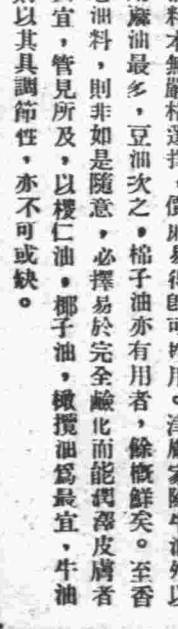 料本無嚴格選擇，價廉易得卽可應用。津廠家除牛油外以
蔴油最多，豆油次之，棉子油亦有用者，餘槪鮮矣。至香
皂油料，則非如是隨意，必擇易於完全鹼化而能潤澤皮膚者
宜，管見所及，以椶仁油，椰子油，橄欖油爲最宜，牛油
則以其具調節性，亦不可或缺。